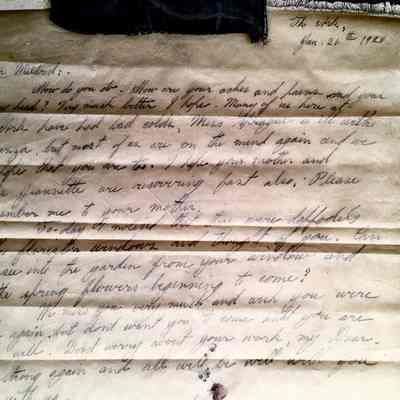 The work,
Jan. 26th 1924
Mildred:-
How do you do. How are your aches and pains and your
head? Very much better I hope. Many of us here at
have had bad colds, Miss is ill with
but most of us are on the mend again and we
hope that you are too. I hope your mother and
are recovering fast also. Please
remember me to your mother.
To-day I noticed the daffodils
windows and thought of you. Can
see into the garden from your window and
the spring flowers beginning to come?
We miss you very much and wish you were
again, but don't want you to come until you are
well. Don't worry about your work, my dear.
strong again and all will be well with you